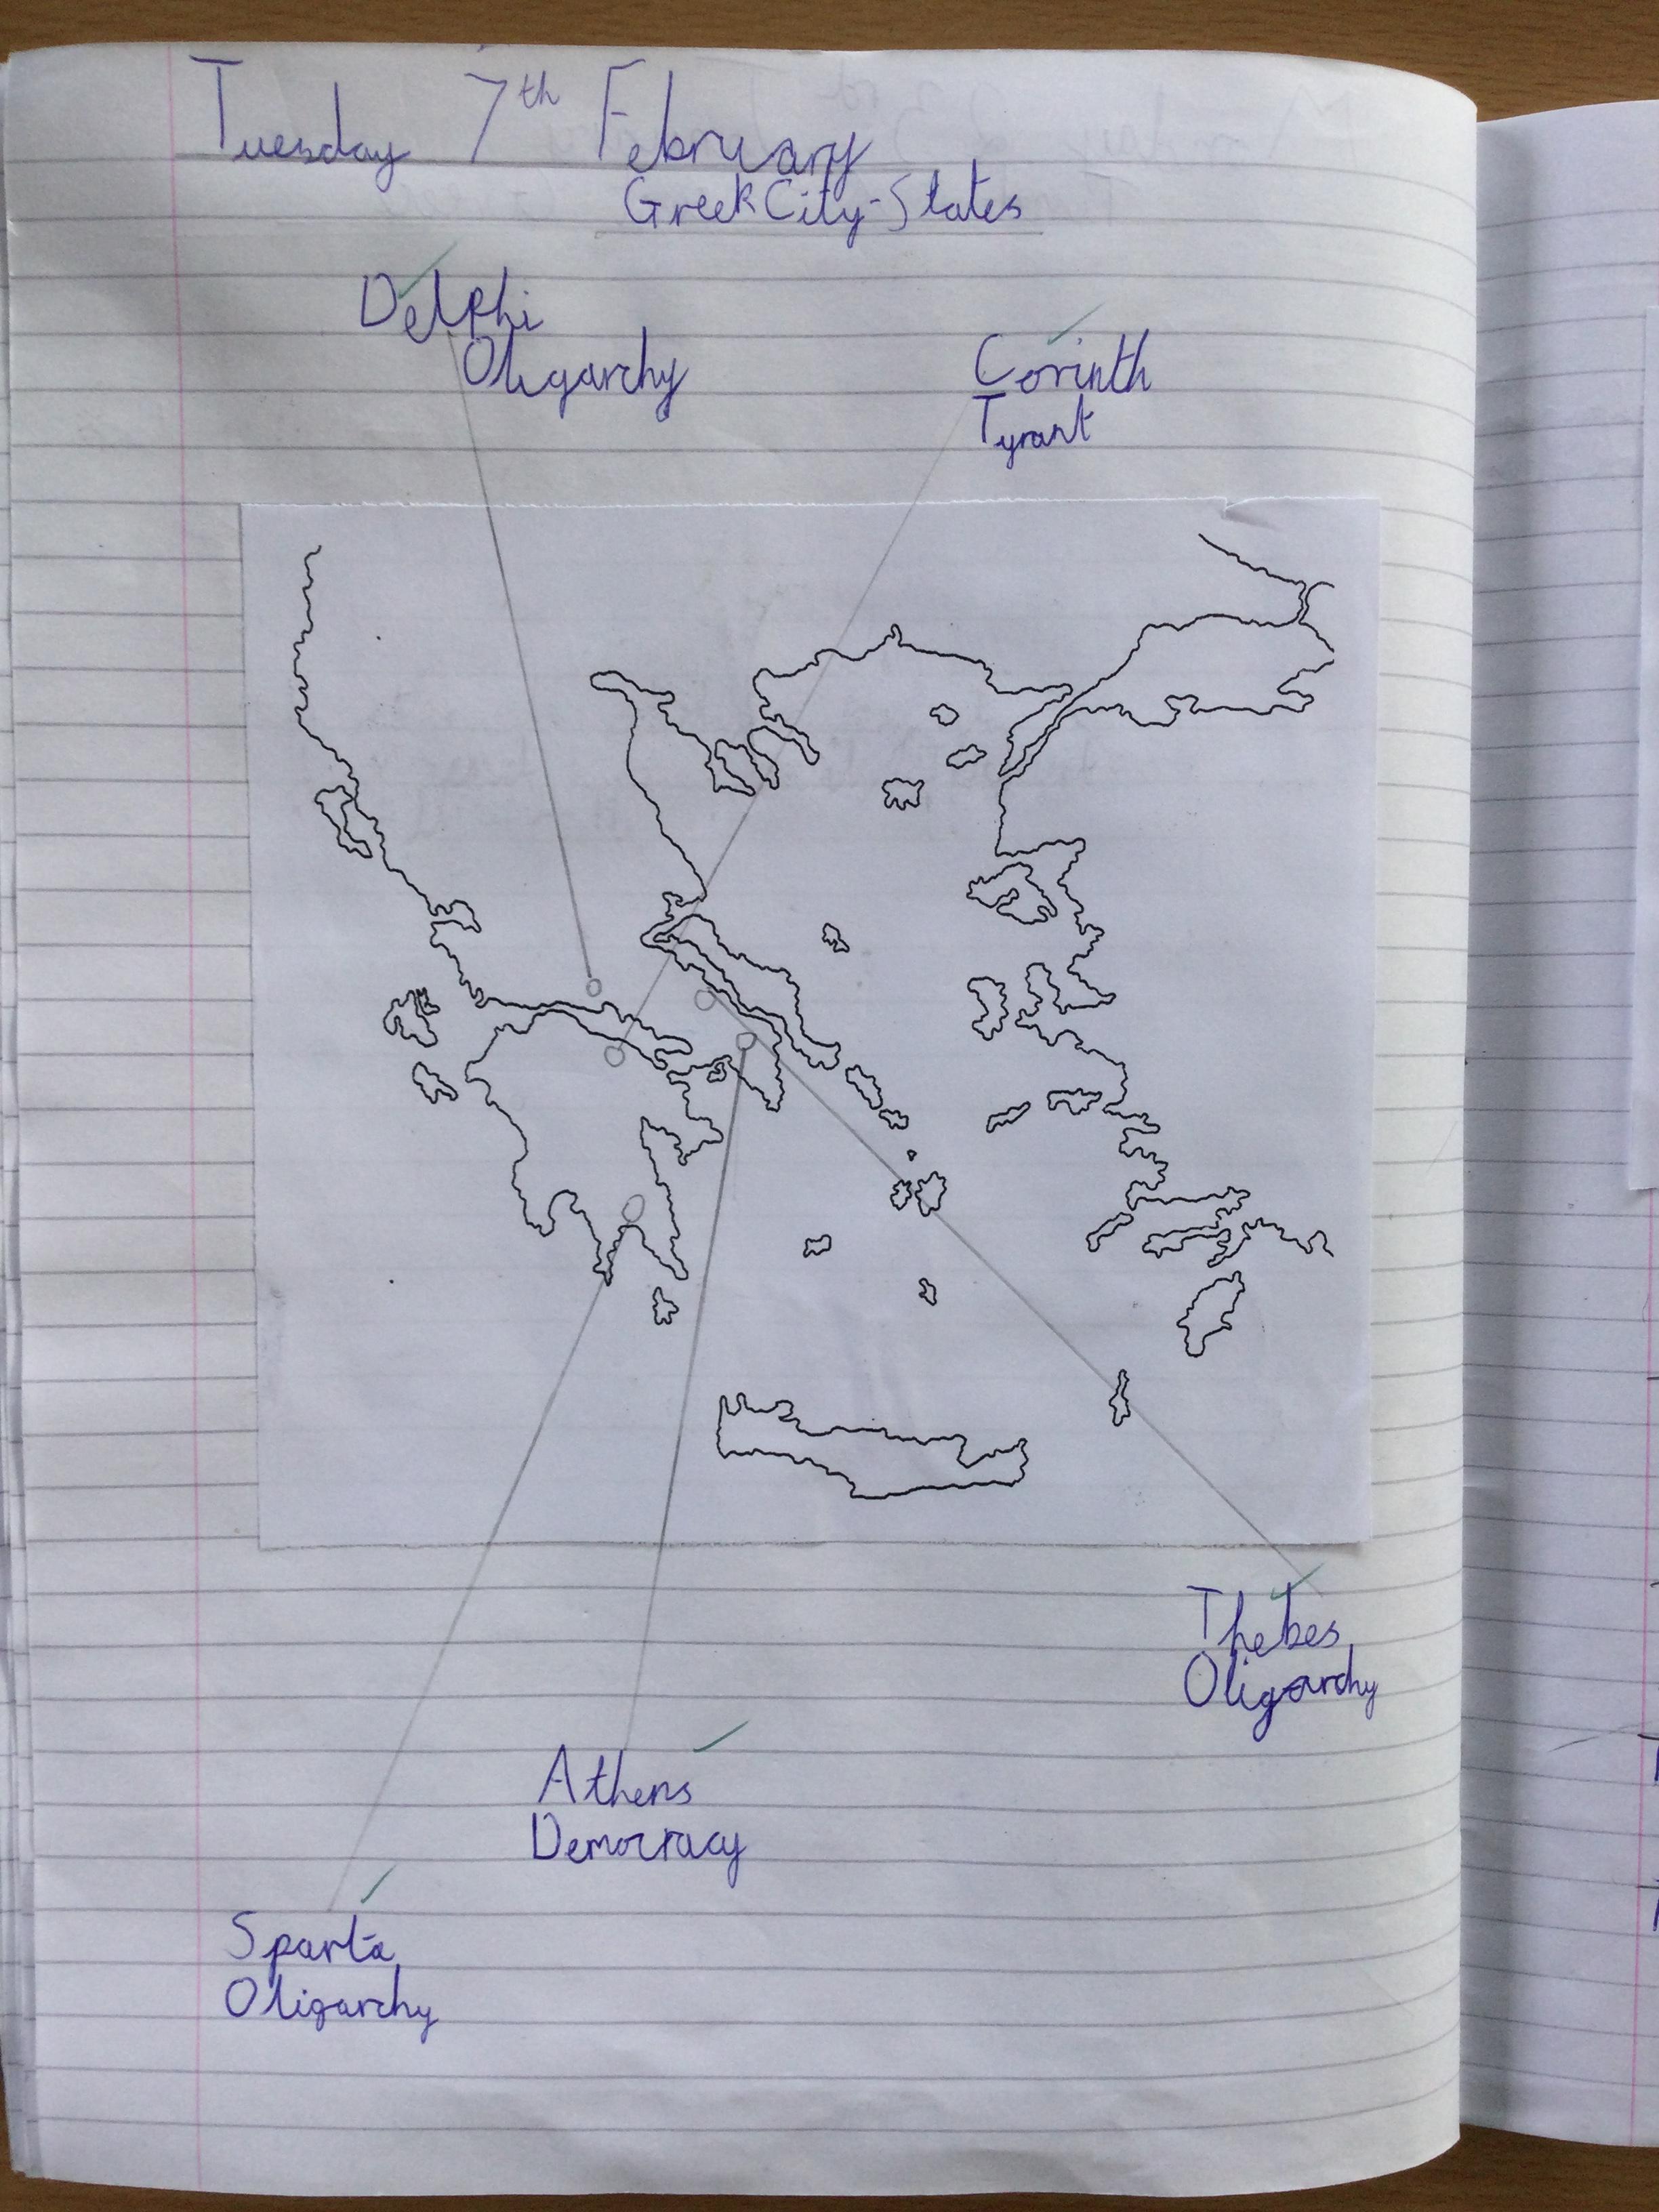 Tuesday 7th February
Greek City-States
Delphi
Oligarchy
Corinth
Tyrant
Thebes
Oligarchy
Athens
Democracy
Sparta
Oligarchy